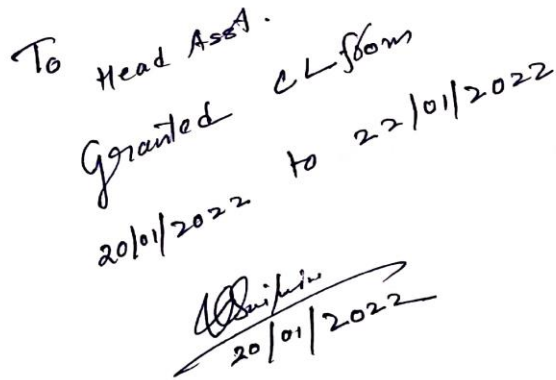 To Head Asst.
Granted CL from
20/01/2022 to 22/01/2022
20/01/2022